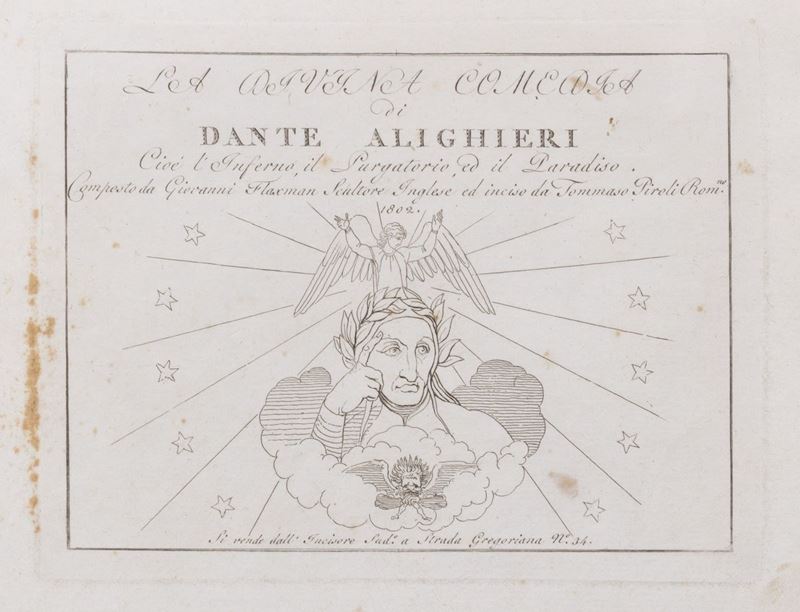 LA DIVINA COMEDIA
di
DANTE ALIGHIERI
Cioé l'Inferno, il Purgatorio, ed il Paradiso.
Composto da Giovanni Flaxman Scultore Inglese, ed inciso da Tommaso Piroli Rom.no
1802.
Si vende dall' Incisore Sud.o a Strada Gregoriana N.o 34.